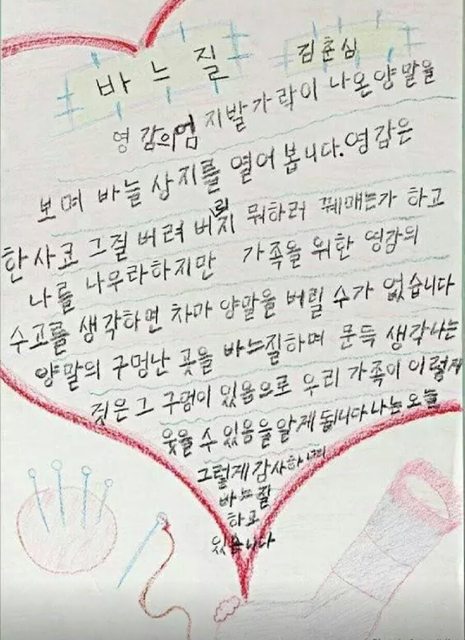 바느질
김춘심
영감의 엄지발가락이 나온 양말을
보며 바늘 상지를 열어 봅니다. 영감은
한사코 그질 버려 버릭지 뭐하러 꿰매는가 하고
나를 나무라하지만 가족을 위한 영감의
수고를 생각하면 차마 양말을 버릴 수가 없습니다
양말의 구멍난 곳을 바느질하며 문득 생각나는
것은 그 구멍이 있음으로 우리 가족이 이렇게
웃을 수 있음을 알게 됩니다 나는 오늘
그렇게 감사하며
바느질
하고
있습니다